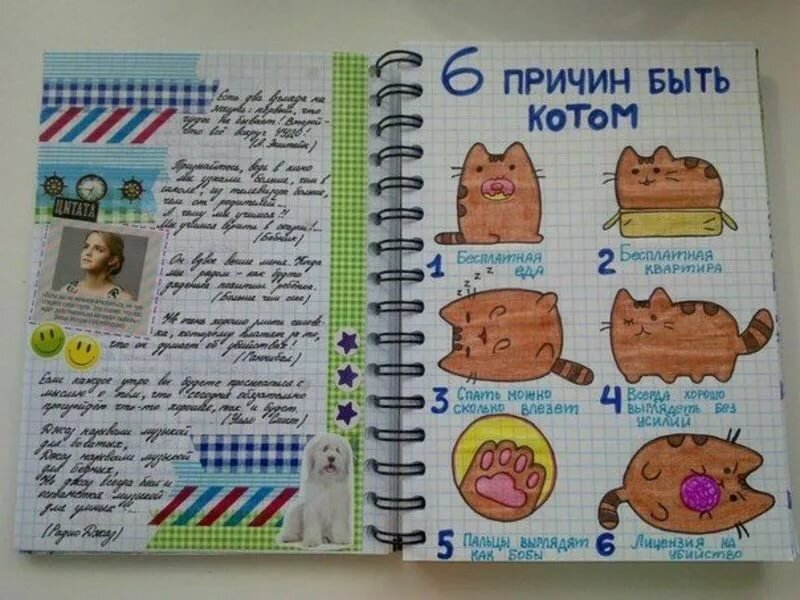 Есть два взгляда на
жизнь: первый, что
чудес не бывает! Второй -
что всё вокруг ЧУДО!
(А. Эйнштейн)
Признайтесь, ведь в кино
мы узнали больше, чем в
школе, из телевизора больше,
чем от родителей...
А чему мы учимся?!
Мы учимся врать и
(Бобник)
ЦИТАТА
Он вдвое выше меня. Когда
мы рядом - как будто
дяденька похитил ребёнка.
(Больше чем секс)
Не очень хорошо злить челове-
ка, которому платят за то,
что он думает об убийствах!
(Ганнибал)
Если каждое утро вы будете просыпаться с
мыслью о том, что сегодня обязательно
произойдёт что-то хорошее, так и будет.
(Уилл Смит)
Джаз называли музыкой
для богатых,
Джаз называли музыкой
для бедных,
Но джаз всегда был и
останется музыкой
для умных!...
(Радио Джаз)
6 ПРИЧИН БЫТЬ
КОТОМ
1 Бесплатная
еда
2 Бесплатная
квартира
z z z z
3 Спать можно
сколько влезет
4 Всегда хорошо
выглядеть без
усилий
5 Пальцы выглядят
как бобы
6 Лицензия на
убийство